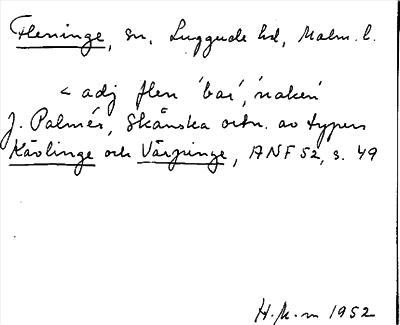 Fleninge, sn, Luggude hd, Malm. l.
< adj flen 'bar', 'naken'
J. Palmér, Skånska ortn. av typen
Kävlinge och Värpinge, ANF 52, s. 49
H.K-m 1952